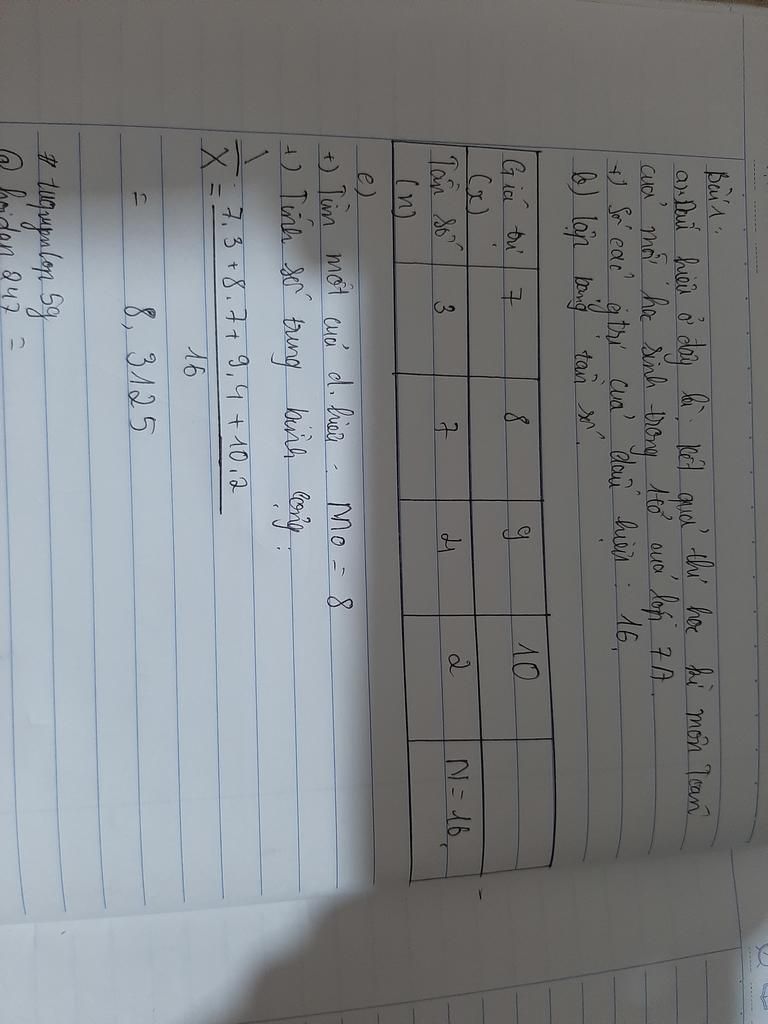 Bài 1:
a) Dấu hiệu ở đây là: Kết quả thi học kì môn Toán
của mỗi học sinh trong 1 tổ của lớp 7A.
+) Số các gtrị của dấu hiệu: 16.
b) lập bảng tần số.
Giá trị (x) 7 8 9 10
Tần số (n) 3 7 4 2 N = 16.
c)
+) Tìm mốt của d.hiệu: Mo = 8
+) Tính số trung bình cộng:
X = 7.3 + 8.7 + 9.4 + 10.2
16
= 8,3125
@ hoidap 247 =